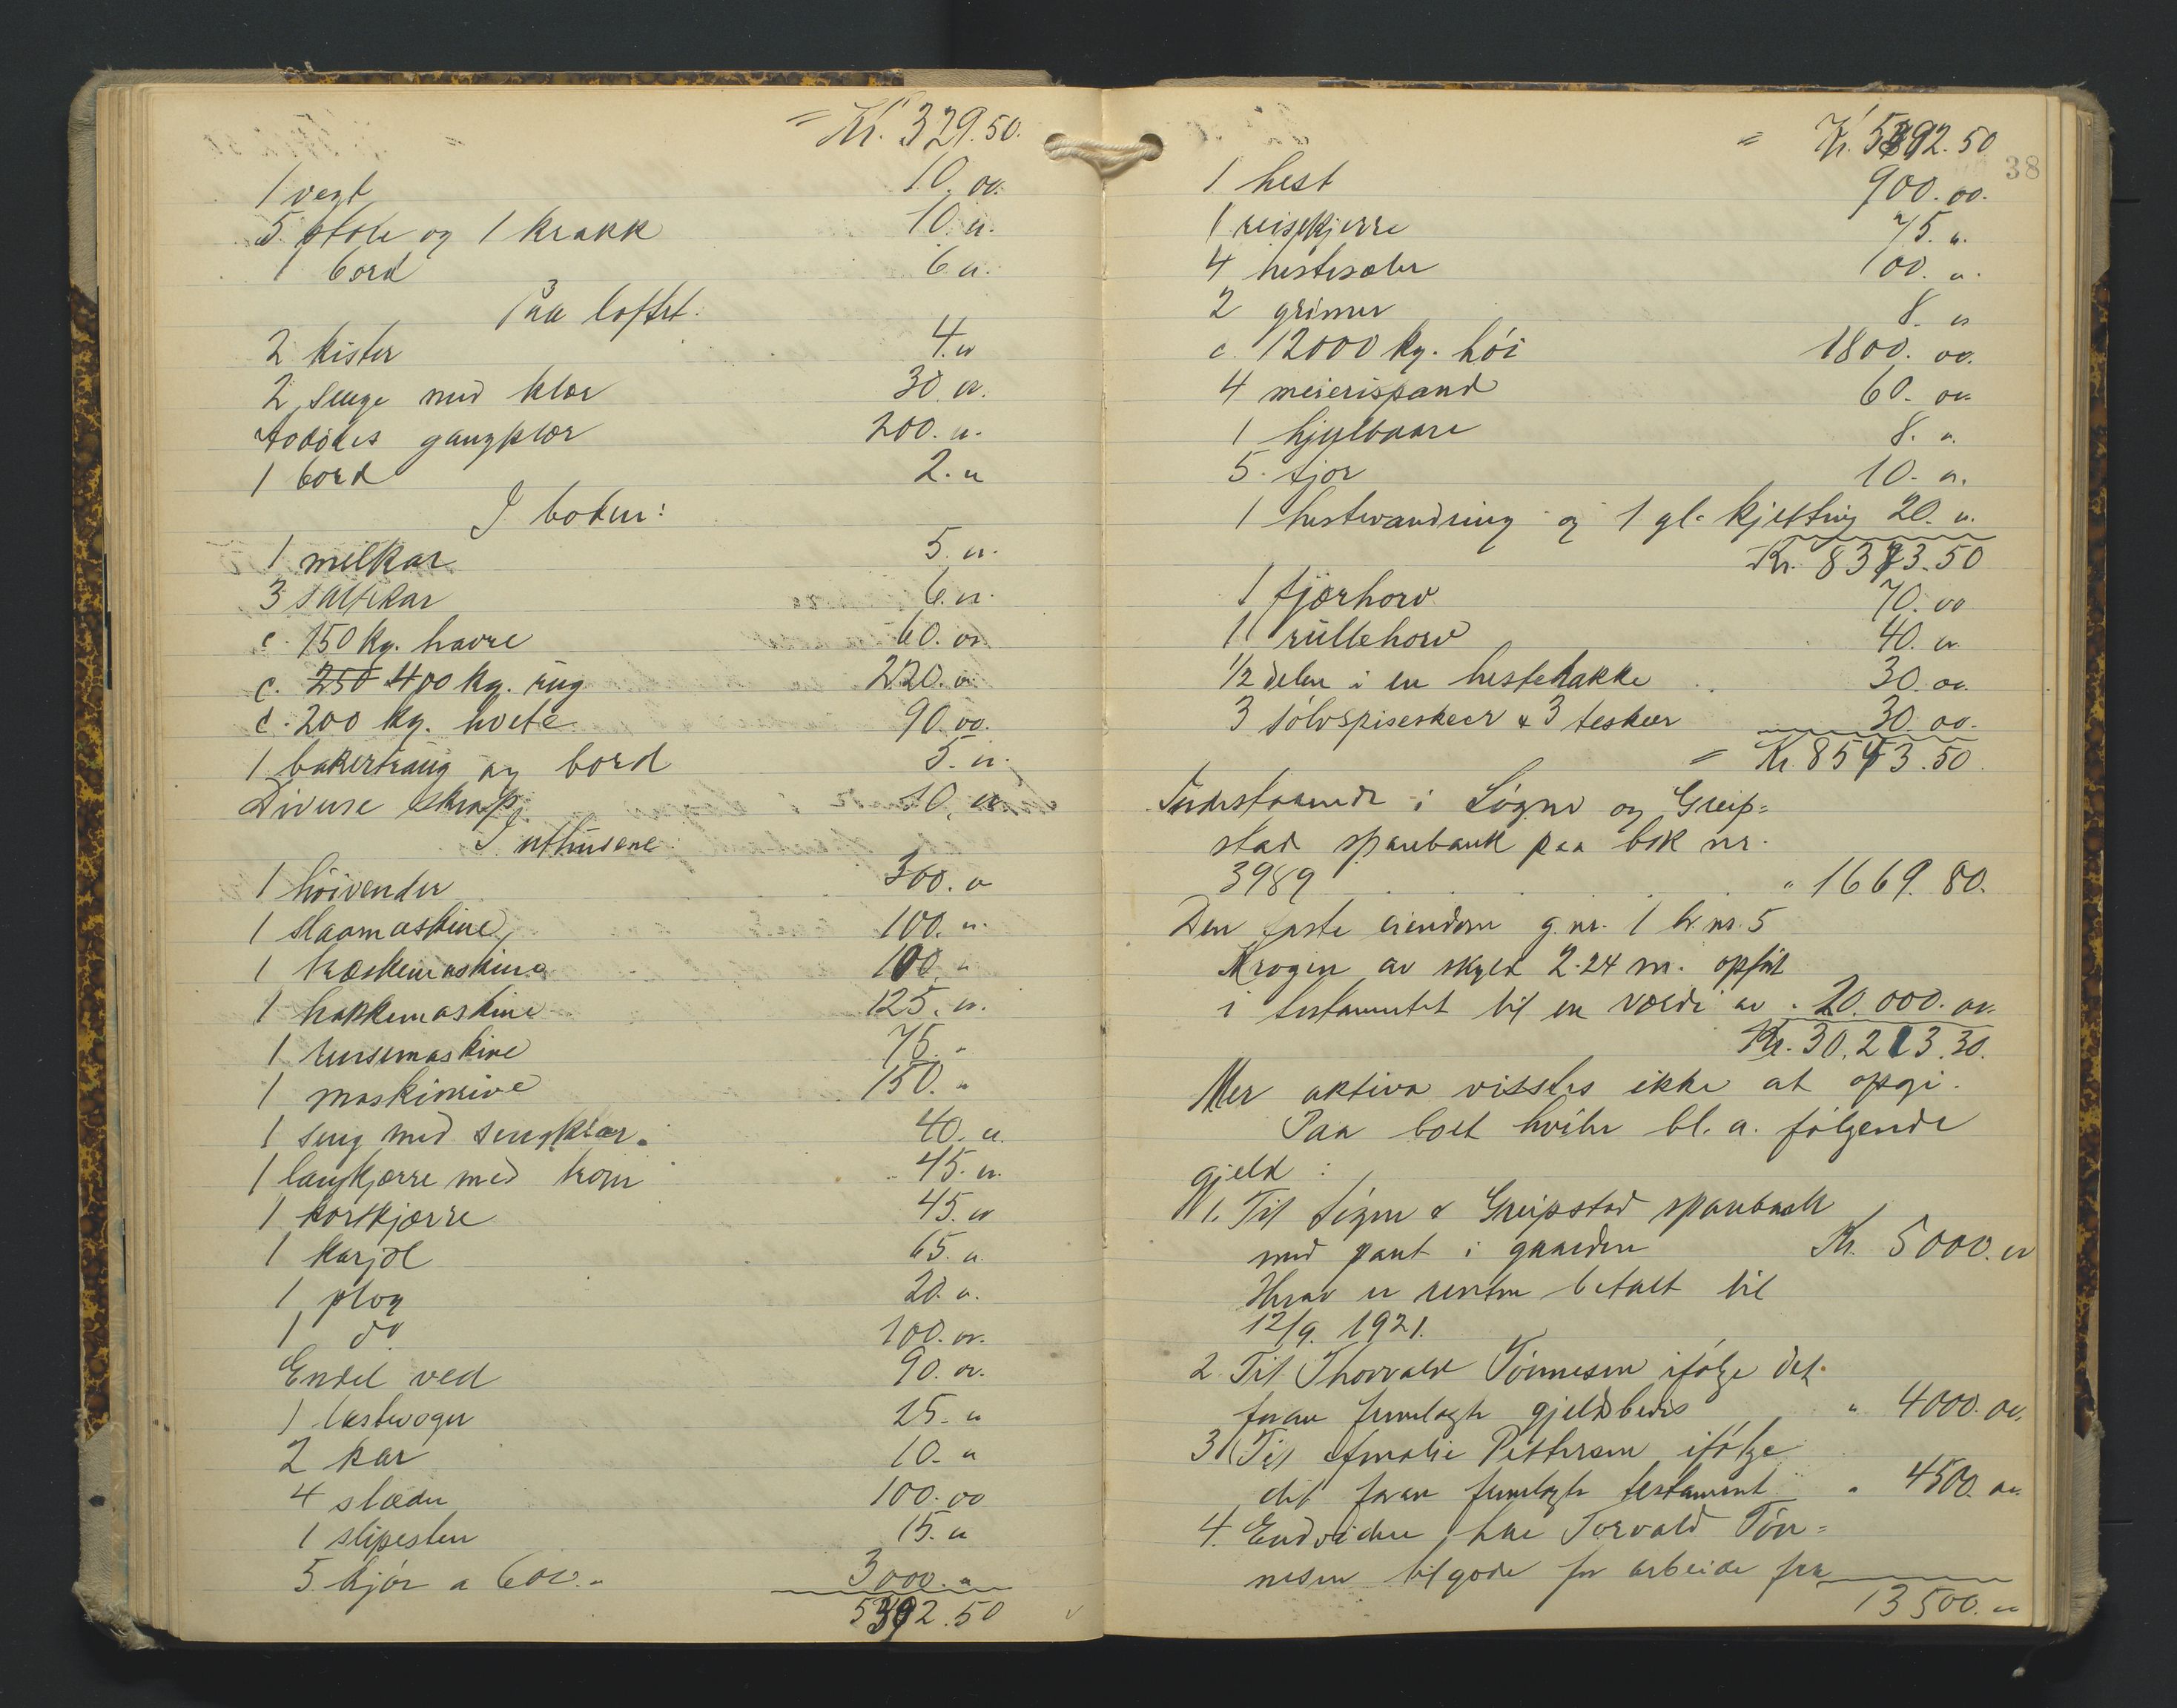 = Kr. 329.50.
1 vegt 10. oo.
5 stole og 1 krakk 10. "
1 bord 6 "
Paa loftet:
2 kister 4. "
2 senge med klær 30. "
Avdødes gangklær 200. "
1 bord 2. "
I boden:
1 melkar 5. "
3 saltekar 6. "
c. 150 kg. havre 60. oo
c. 250 400 kg. rug 220. "
c. 200 kg. hvete 90. oo.
1 bakertraug og bord 5. "
Diverse skrap 10. "
I uthusene:
1 höivender 300. "
1 slaamaskine 100. "
1 træskemaskine 100. "
1 hakkemaskine 125. "
1 rensemaskine 75. "
1 maskinrive 150. "
1 seng med sengklær. 40. "
1 langkjærre med krom 45. "
1 kortkjærre 45. "
1 karjol 65. "
1 plog 20. "
1 do 100. oo.
Endel ved 90. oo.
1 lastevogn 25. "
2 kar 10. "
4 slæder 100. oo
1 slipesten 15. "
5 kjör a 600. " 3000. "
5392.50
38
= Kr. 5392.50
1 hest 900. oo.
1 reisekjerre 75. "
4 hestesæler 100. "
2 grimer 8. "
c. 12000 kg. höi 1800. oo.
4 meierispand 60. oo
1 hjulbaare 8. "
5 tjor 10. "
1 hestevandring og 1 gl. kjetting 20. "
Kr. 8373.50
1 fjærhorv 70. oo
1 rullehorv 40. "
1/2 delen i en hestehakke 30. oo.
3 sölvspiseskeer & 3 teskeer 30. oo.
= Kr. 8543.50
Indestaaende i Sögne og Greip=
stad sparebank paa bok nr.
3989 " 1669. 80.
Den faste eiendom g.nr. 1 br.nr. 5
Krogen av skyld 2.24 m. opfört
i testamentet til en værdi av " 20.000. oo.
Kr. 30.213.30.
Mer aktiva visstes ikke at opgi.
Paa boet hviler bl. a. fölgende
gjeld:
1. Til Sögne & Greipstad sparebank
med pant i gaarden Kr. 5000. "
Herav er renten betalt til
12/9. 1921.
2. Til Thorvald Tönnesen ifölge det
foran fremlagte gjeldsbevis " 4000. oo.
3. Til Amalie Pettersen ifölge
det foran fremlagte testament " 4500. oo.
4. Endvidere har Torvald Tön=
nesen tilgode for arbeide fra
13500. "